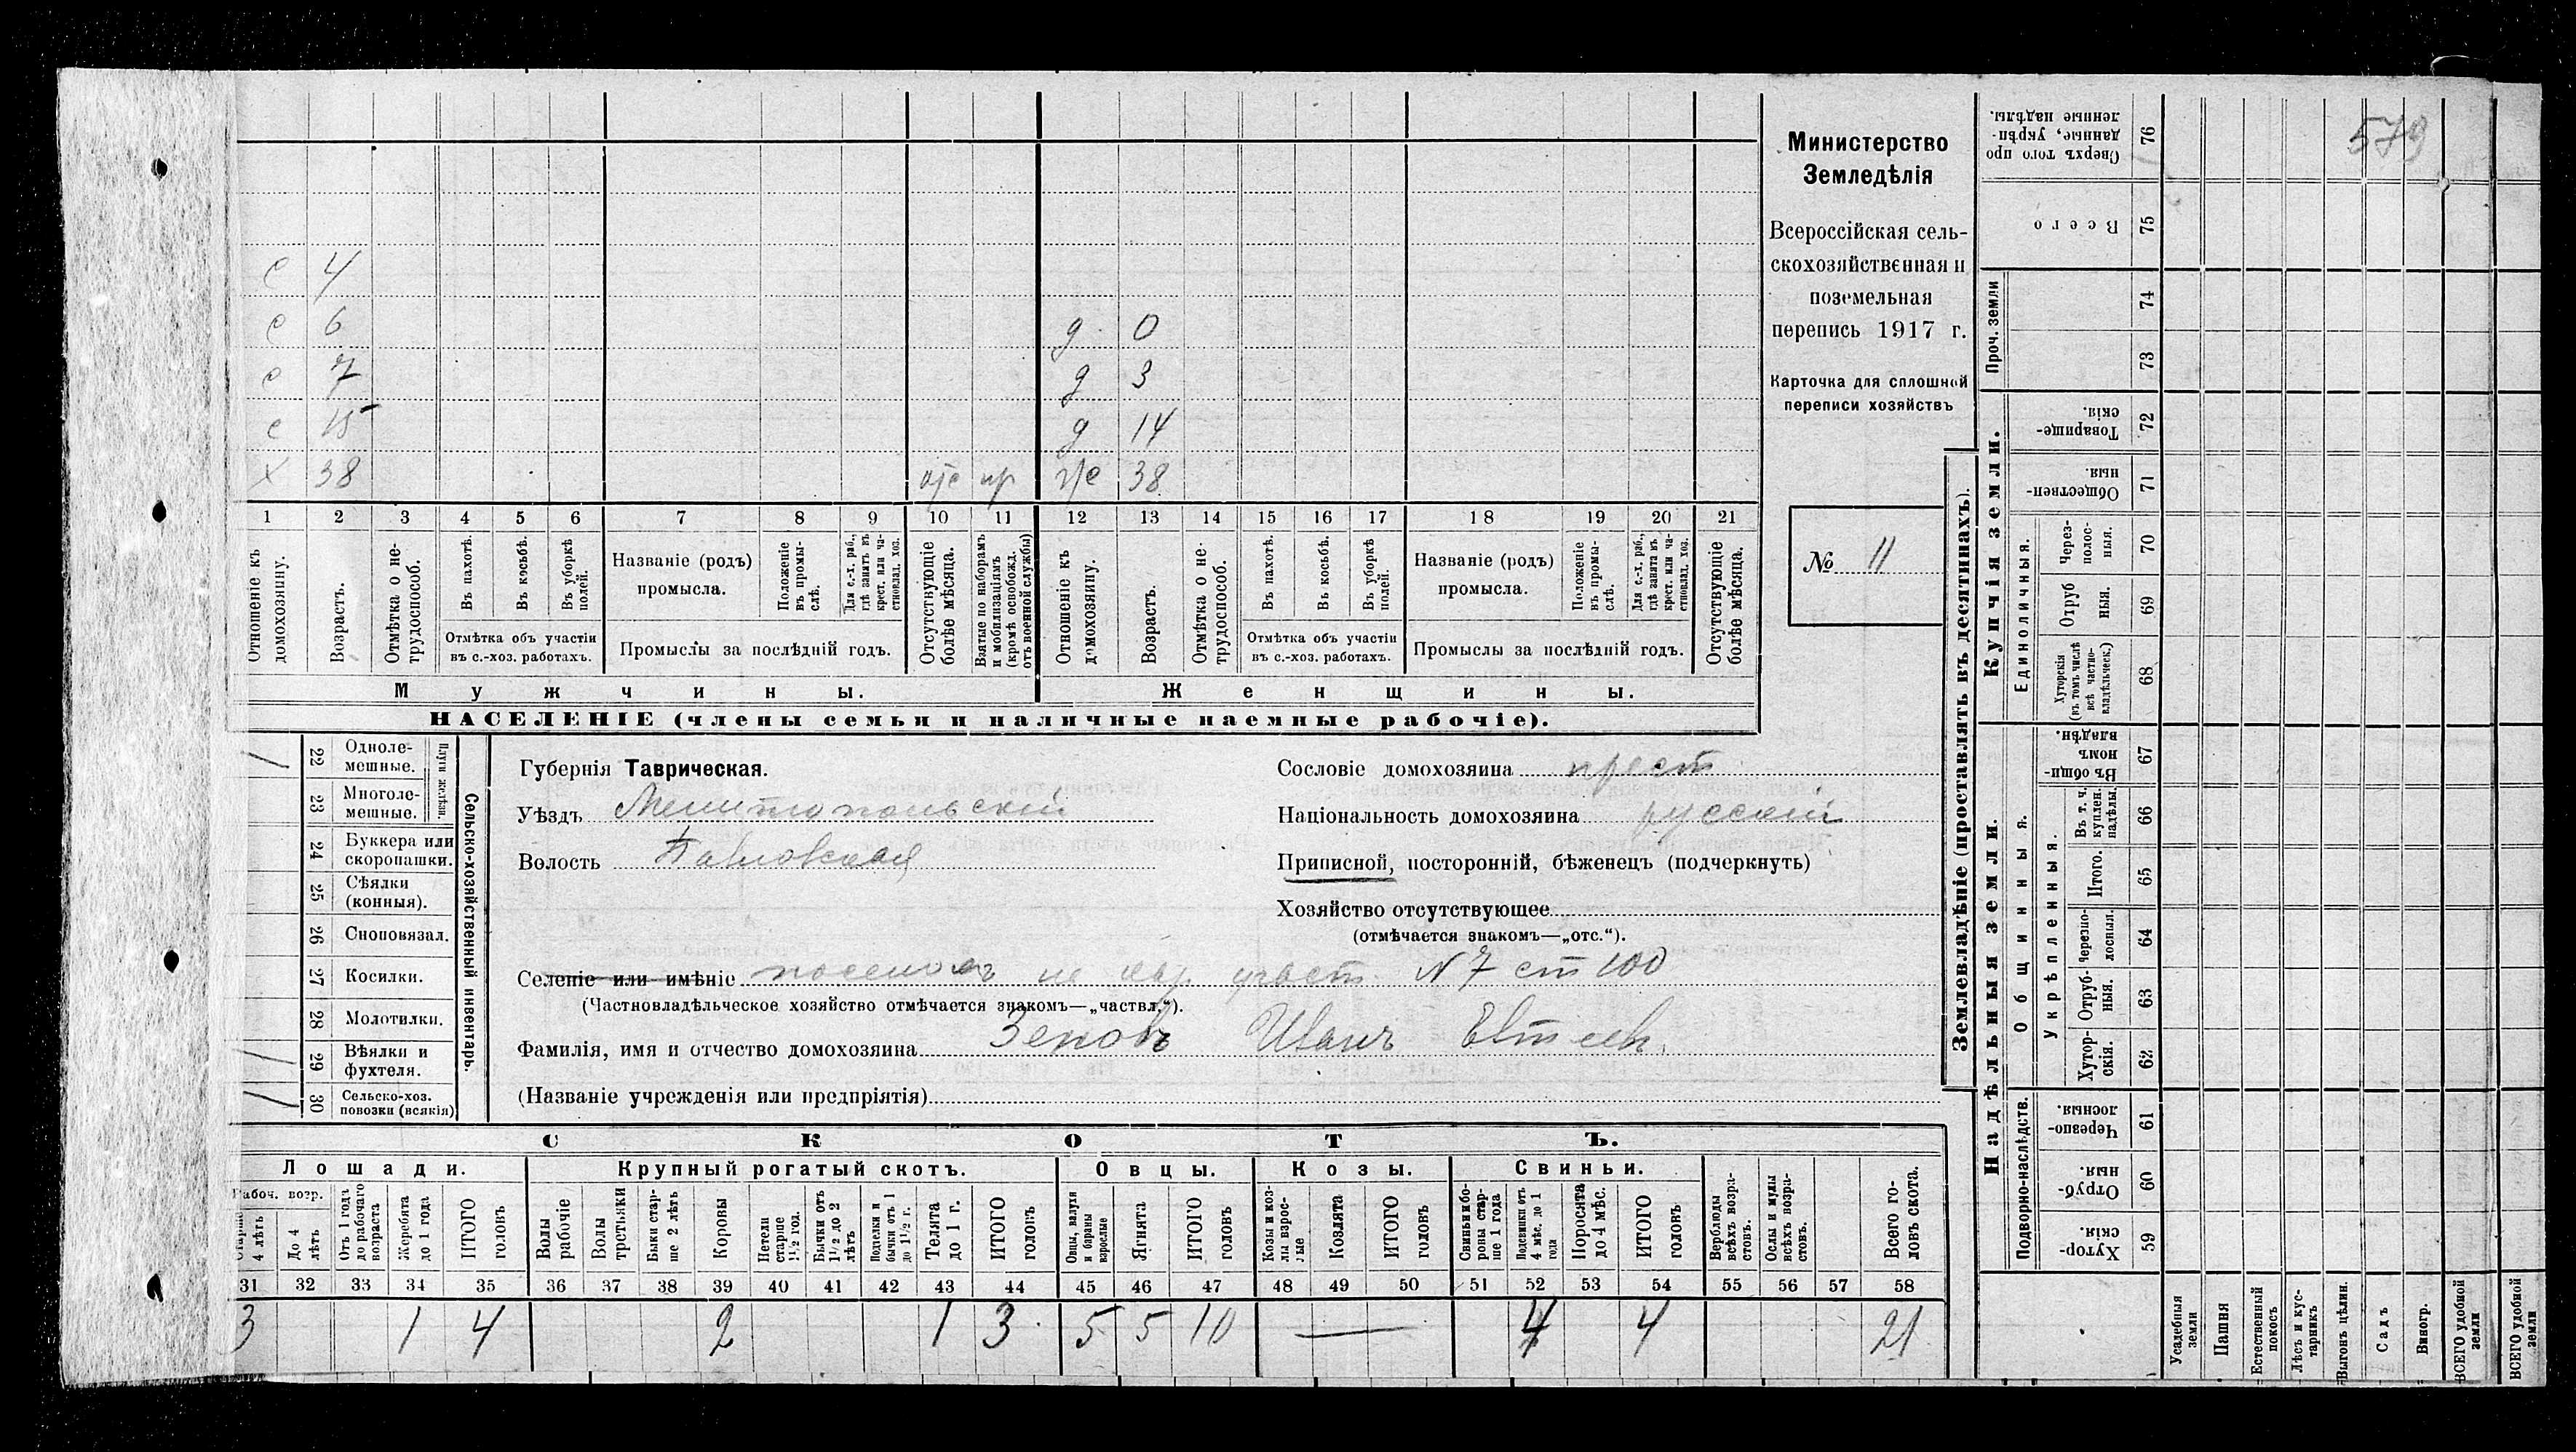 579
Министерство
Земледѣлія
Всероссійская сель-
скохозяйственная и
поземельная
перепись 1917 г.
Карточка для сплошной
переписи хозяйствъ
№ 11
с 4
с 6 д 0
с 7 д 3
с 15 д 14
х 38 38
1 2 3 4 5 6 7 8 9 10 11 12 13 14 15 16 17 18 19 20 21
Отношеніе къ домохозяину.
Возрастъ.
Отмѣтка о не-трудоспособ.
Въ пахотѣ.
Въ косьбѣ.
Въ уборкѣ полей.
Отмѣтка объ участіи
въ с.-хоз. работахъ.
Названіе (родъ)
промысла.
Положеніе въ промы-слѣ.
Для с.-х. раб., гдѣ занятъ въ крест. или ча-стновлад. хоз.
Промыслы за послѣдній годъ.
Отсутствующіе болѣе мѣсяца.
Взятые по наборамъ и мобилизаціямъ (кромѣ освобожд. отъ военной службы)
Отношеніе къ домохозяину.
Возрастъ.
Отмѣтка о не-трудоспособ.
Въ пахотѣ.
Въ косьбѣ.
Въ уборкѣ полей.
Отмѣтка объ участіи
въ с.-хоз. работахъ.
Названіе (родъ)
промысла.
Положеніе въ промы-слѣ.
Для с.-х. раб., гдѣ занята въ крест. или ча-стновлад. хоз.
Промыслы за послѣдній годъ.
Отсутствующіе болѣе мѣсяца.
Мужчины. Женщины.
НАСЕЛЕНІЕ (члены семьи и наличные наемные рабочіе).
Сельско-хозяйственный инвентарь.
Плуги желѣзн.
22 Одноле-мешные.
23 Многоле-мешные.
24 Буккера или скоропашки.
25 Сѣялки (конныя).
26 Сноповязал.
27 Косилки.
28 Молотилки.
29 Вѣялки и фухтеля.
30 Сельско-хоз. повозки (всякія)
Губернія Таврическая.
Уѣздъ Мелитопольскій
Волость Павловская
Сословіе домохозяина крест
Національность домохозяина русскій
Приписной, посторонній, бѣженецъ (подчеркнуть)
Хозяйство отсутствующее
(отмѣчается знакомъ—„отс.“).
Селеніе или имѣніе поселокъ не участ N 7 ст 100
(Частновладѣльческое хозяйство отмѣчается знакомъ—„частвл.“).
Фамилія, имя и отчество домохозяина Зеновъ Иванъ Евтеев.
(Названіе учрежденія или предпріятія)
СКОТЪ.
Лошади. Крупный рогатый скотъ. Овцы. Козы. Свиньи.
Рабоч. возр.
Старше 4 лѣтъ
До 4 лѣтъ
Отъ 1 годъ до рабочаго возраста
Жеребята до 1 года
ИТОГО головъ
Волы рабочіе
Волы третьяки
Быки стар-ше 2 лѣтъ
Коровы
Нетели старше 1½ год.
Бычки отъ 1½ до 2 лѣтъ
Подтелки и бычки отъ 1 до 1½ г.
Телята до 1 г.
ИТОГО головъ
Овцы, валухи и бараны взрослые
Ягнята
ИТОГО головъ
Козы и коз-лы взрос-лые
Козлята
ИТОГО головъ
Свиньи и бо-ровы стар-ше 1 года
Подсвинки отъ 4 мѣс. до 1 года
Поросята до 4 мѣс.
ИТОГО головъ
Верблюды всѣхъ возра-стовъ.
Ослы и мулы всѣхъ возра-стовъ.
Всего го-ловъ скота.
31 32 33 34 35 36 37 38 39 40 41 42 43 44 45 46 47 48 49 50 51 52 53 54 55 56 57 58
3 1 4 2 1 3 5 5 10 — 4 4 21
Землевладѣніе (проставлять въ десятинахъ).
Купчія земли.
Надѣльныя земли.
Сверхъ того про данные, укрѣп-ленные надѣлы. 76
Всего 75
Проч. земли 74
73
Товарище-скія. 72
Обществен-ныя. 71
Единоличныя.
Через-полос-ныя. 70
Отруб ныя. 69
Хуторскія (въ томъ числѣ всѣ частно-владѣльческ.) 68
Общинныя.
Въ общи-номъ владѣн. 67
Укрѣпленныя.
Въ т. ч. куплен. надѣлы. 66
Итого. 65
Черезпо-лосныя. 64
Отруб-ныя. 63
Хутор-скія. 62
Подворно-наслѣдств.
Черезпо-лосныя. 61
Отруб-ныя. 60
Хутор-скія. 59
Усадебныя земли
Пашня
Естественный покосъ
Лѣсъ и кус-тарникъ
Выгонъ цѣлин.
Садъ
Виногр.
ВСЕГО удобной земли
ВСЕГО удобной земли